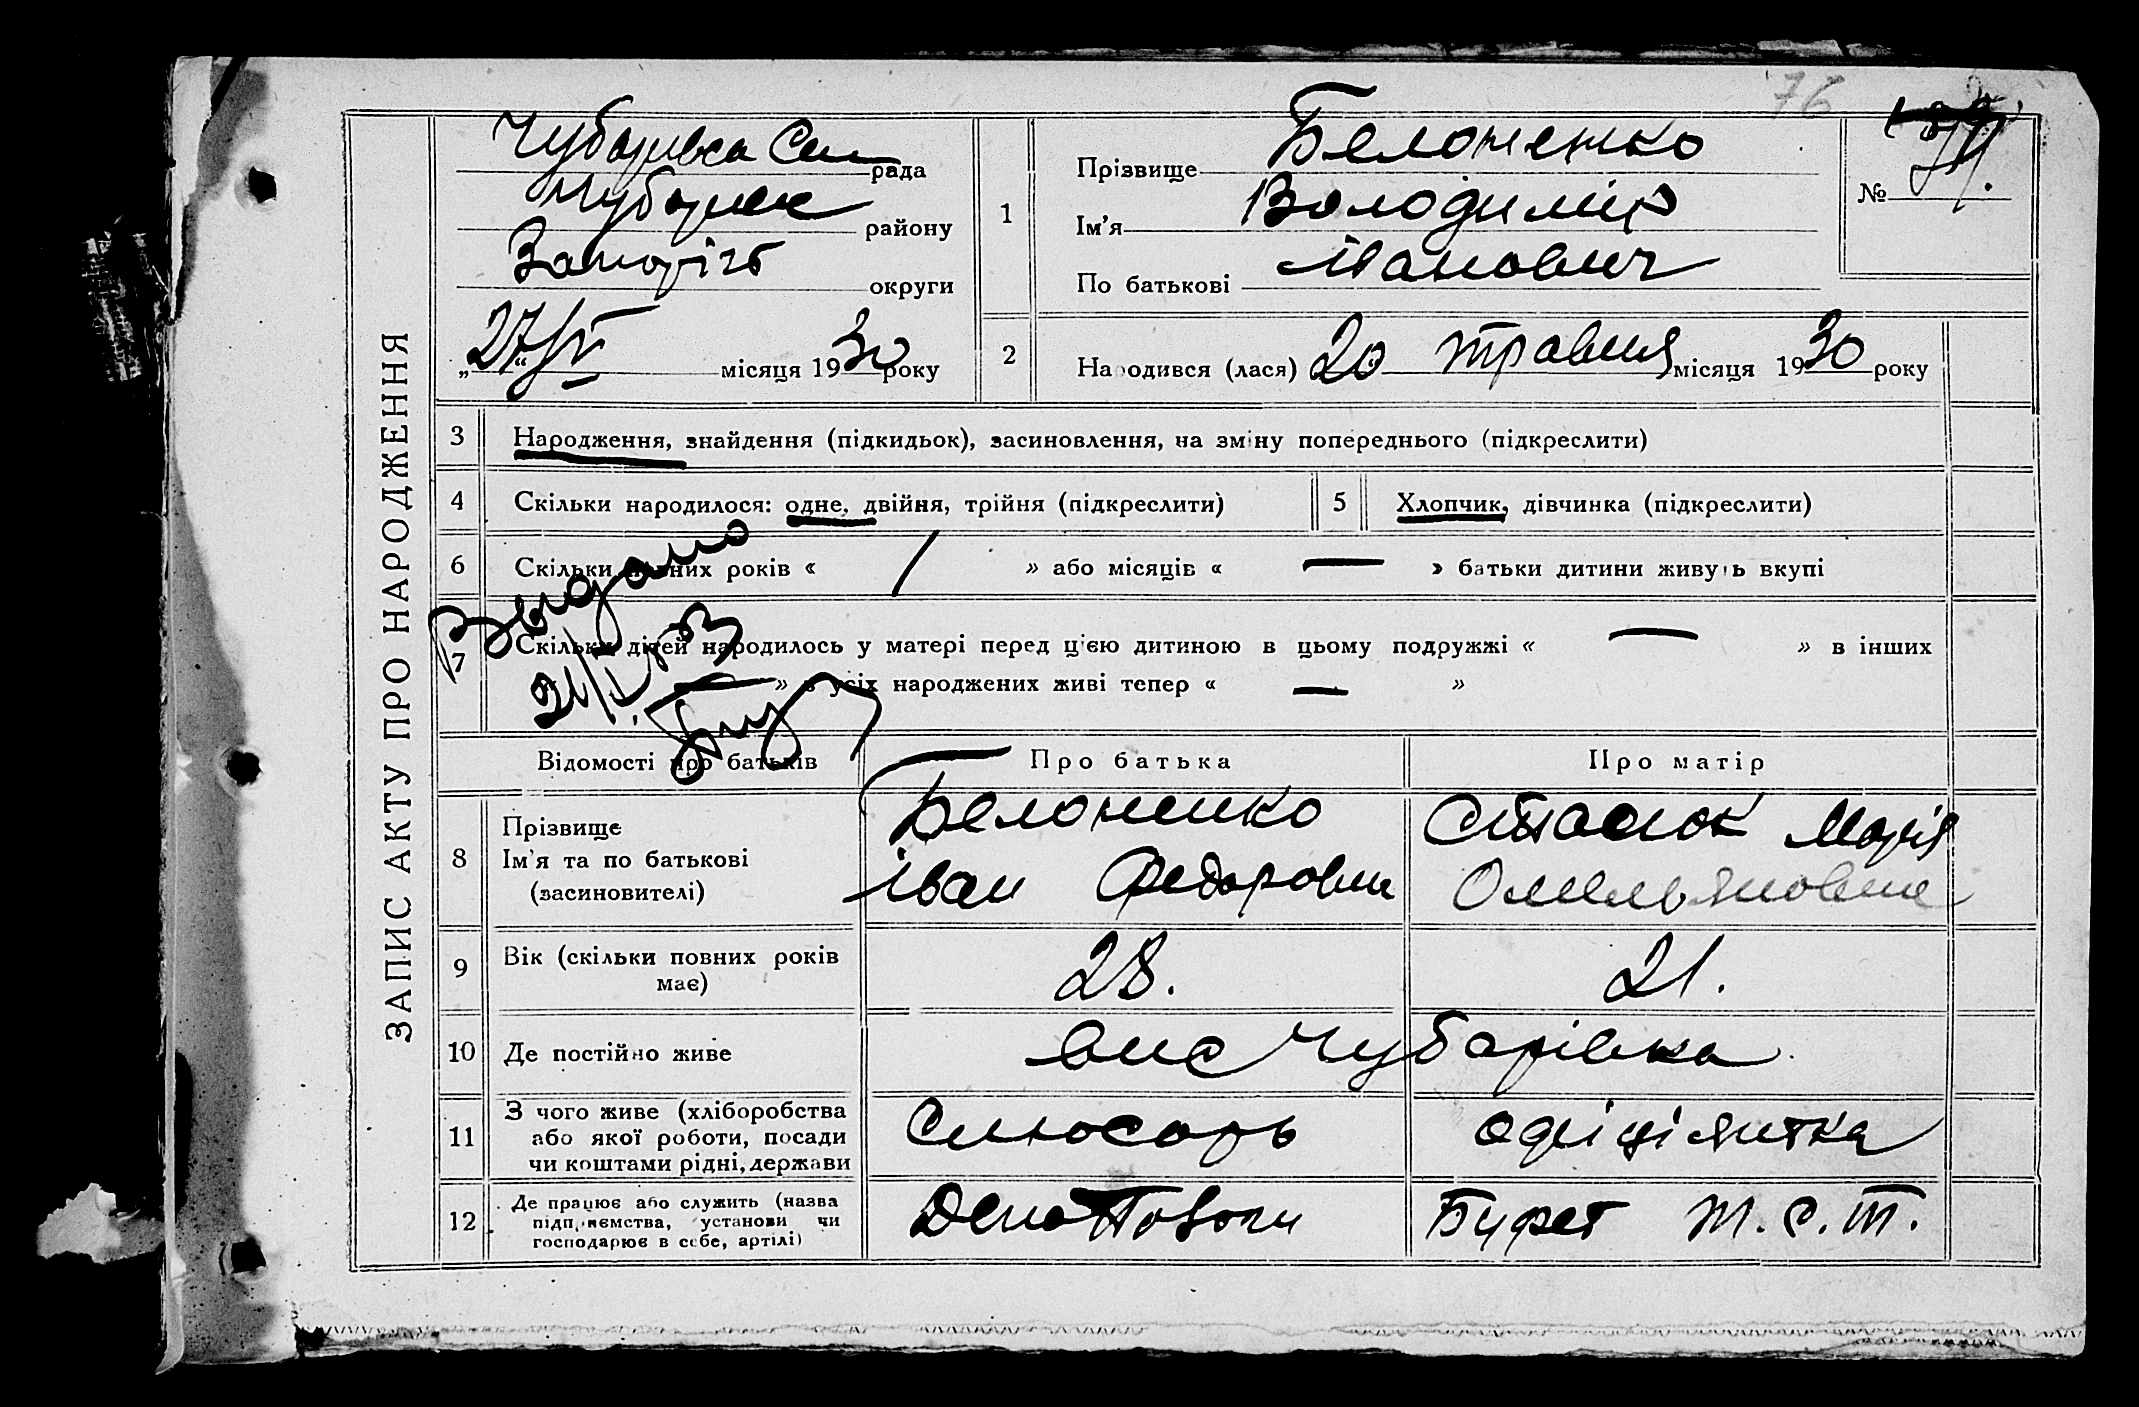 76
ЗАПИС АКТУ ПРО НАРОДЖЕННЯ
Чубарівка Сіл рада
Чубарівск району
Запоріз округи
„27/V“ місяця 1930 року
1
Прізвище Белоненко
Ім’я Володимир
По батькові Іванович
№
2 Народився (лася) 20 травня місяця 1930 року
3 Народження, знайдення (підкидьок), засиновлення, на зміну попереднього (підкреслити)
4 Скільки народилося: одне, двійня, трійня (підкреслити)
5 Хлопчик, дівчинка (підкреслити)
6 Скільки повних років « 1 » або місяців « — » батьки дитини живуть вкупі
7 Скільки дітей народилось у матері перед ц’єю дитиною в цьому подружжі « — » в інших
— » з усіх народжених живі тепер « — »
Выдано
21/V 53
Відомості про батьків Про батька Про матір
8 Прізвище
Ім’я та по батькові
(засиновителі)
Белоненко
Іван Федорович
Стасюк Марія
Омельяновна
9 Вік (скільки повних років
має)
28. 21.
10 Де постійно живе вис Чубарівка
11 З чого живе (хліборобства
або якої роботи, посади
чи коштами рідні, держави
Слюсарь офіціянтка
12 Де працює або служить (назва
підприємства, установи чи
господарює в себе, артілі)
Депо Пологи Буфет Т.С.Т.